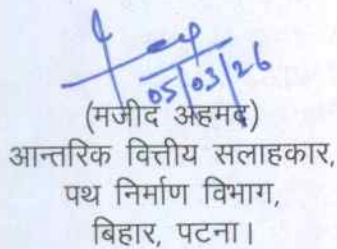 05/03/26
(मजीद अहमद)
आन्तरिक वित्तीय सलाहकार,
पथ निर्माण विभाग,
बिहार, पटना।